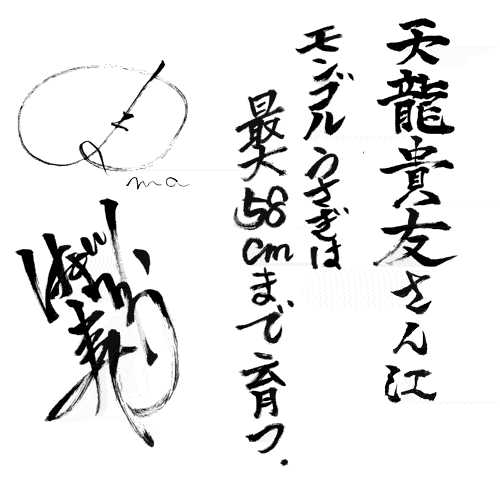 天龍貴友さん江
モンゴルうさぎは
最大58cmまで育つ.
ma